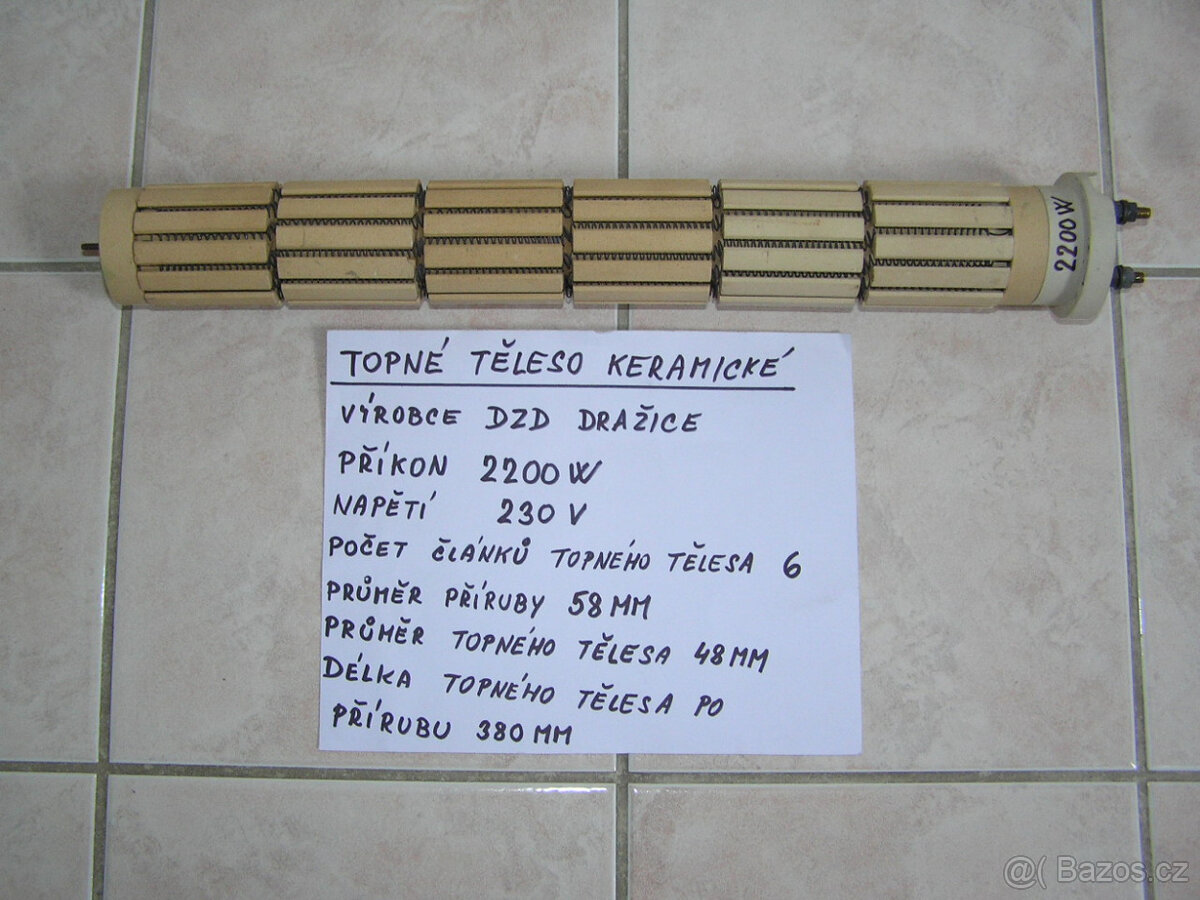 2200W
TOPNÉ TĚLESO KERAMICKÉ
VÝROBCE DZD DRAŽICE
PŘÍKON 2200W
NAPĚTÍ 230 V
POČET ČLÁNKŮ TOPNÉHO TĚLESA 6
PRŮMĚR PŘÍRUBY 58 MM
PRŮMĚR TOPNÉHO TĚLESA 48 MM
DÉLKA TOPNÉHO TĚLESA PO
PŘÍRUBU 380 MM
@( Bazos.cz